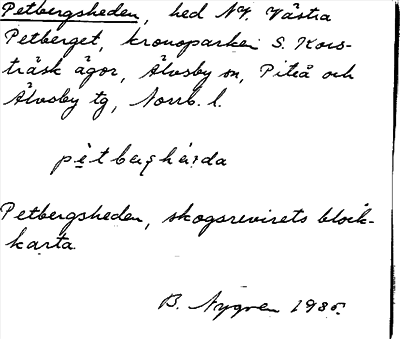 Petbergsheden, hed NV. Västra
Petberget, kronoparken S. Kors-
träsk ägor, Älvsby sn, Piteå och
Älvsby tg, Norrb. l.
Petbergsheden, skogsrevirets block-
karta
B. Nygren 1935.